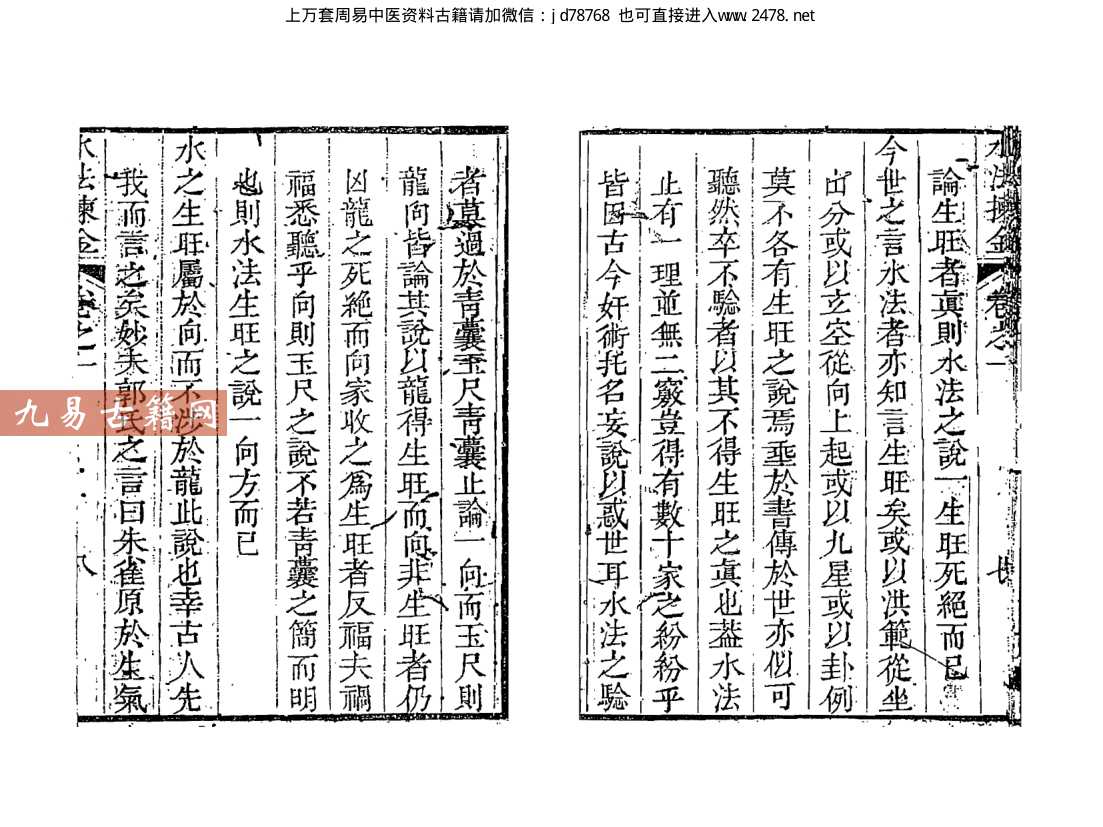 上万套周易中医资料古籍请加微信：jd78768 也可直接进入www.2478.net
水法揀金 卷之一 七
論生旺者眞則水法之說一生旺死絕而已
今世之言水法者亦知言生旺矣或以洪範從坐
出分或以玄空從向上起或以九星或以卦例
莫不各有生旺之說焉垂於書傳於世亦似可
聽然卒不驗者以其不得生旺之眞也蓋水法
止有一理並無二竅豈得有數十家之紛紛乎
皆因古今奸術托名妄說以惑世耳水法之驗
者莫過於靑囊玉尺靑囊止論一向而玉尺則
龍向皆論其說以龍得生旺而向非生旺者仍
凶龍之死絕而向家收之爲生旺者反福夫禍
福悉聽乎向則玉尺之說不若靑囊之簡而明
也則水法生旺之說一向方而已
水之生旺屬於向而不涉於龍此說也幸古人先
我而言之矣妙夫郭氏之言曰朱雀原於生氣
水法揀金 卷之一 八
九易古籍网